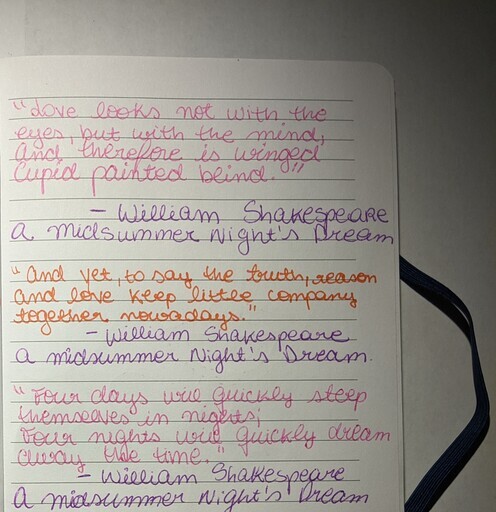 "Love looks not with the
eyes, but with the mind,
And therefore is winged
Cupid painted blind."
- William Shakespeare
A Midsummer Night's Dream
"And yet, to say the truth, reason
and love keep little company
together nowadays."
- William Shakespeare
A midsummer Night's Dream.
"Four days will quickly steep
themselves in nights;
Four nights will quickly dream
away the time."
- William Shakespeare
A midsummer Night's Dream